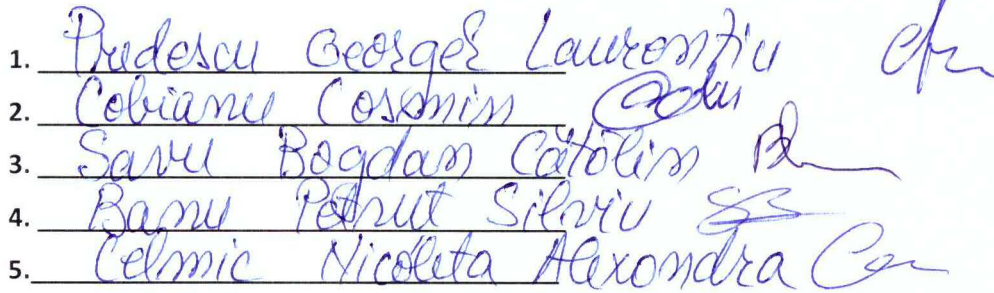 1. Predescu George Laurențiu
2. Cobianu Cosmin
3. Savu Bogdan Cătălin
4. Banu Petrut Silviu
5. Celmic Nicoleta Alexandra